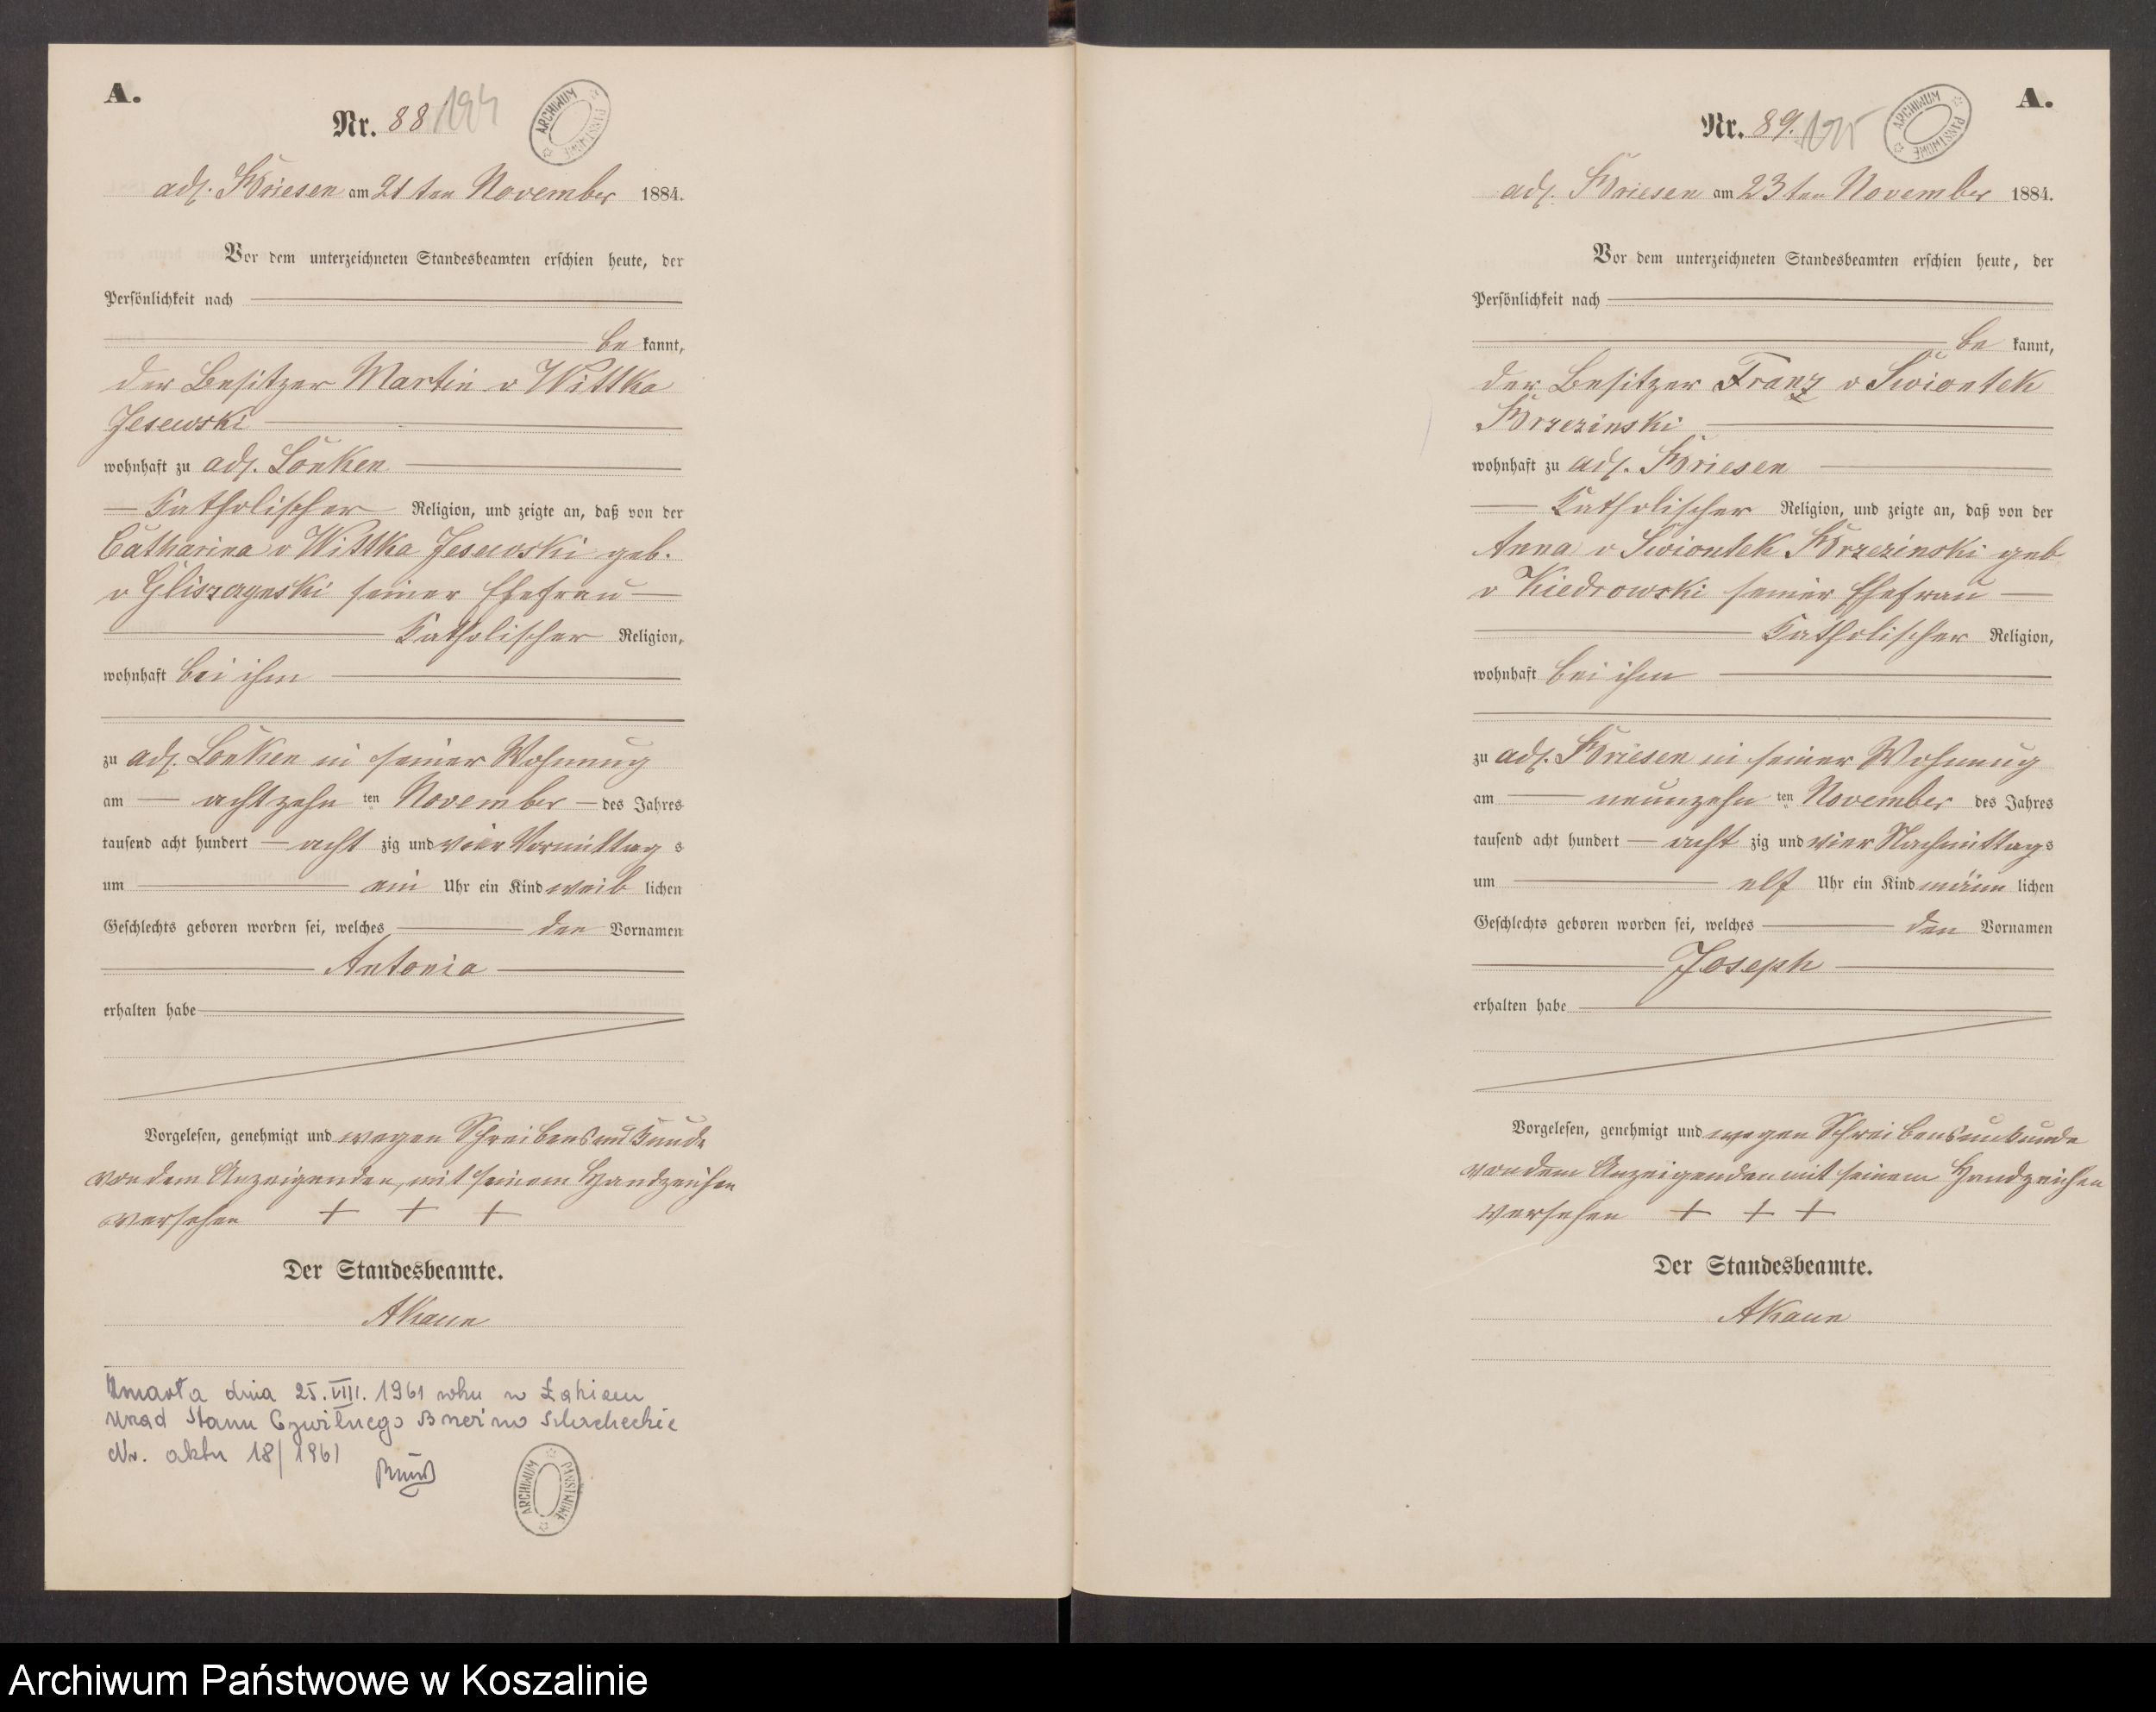 A.
Nr. 88 194
ARCHIWUM PAŃSTWOWE
adl. Briesen am 21ten November 1884.
Vor dem unterzeichneten Standesbeamten erschien heute, der
Persönlichkeit nach
bekannt,
der Besitzer Martin v Wittka
Jesewski
wohnhaft zu adl. Lonken
Katholischer Religion, und zeigte an, daß von der
Catharina v Wittka Jesewski geb.
v Gliszczynski seiner Ehefrau
Katholischer Religion,
wohnhaft bei ihm
zu adl. Lonken in seiner Wohnung
am achtzehn ten November des Jahres
tausend acht hundert acht zig und vier Vormittags
um ein Uhr ein Kind weiblichen
Geschlechts geboren worden sei, welches den Vornamen
Antonia
erhalten habe
Vorgelesen, genehmigt und wegen Schreibensunkunde
von dem Anzeigenden, mit seinem Handzeichen
versehen + + +
Der Standesbeamte.
AKaun
Zmarła dnia 25.VIII.1961 roku w
Urząd Stanu Cywilnego Brzeźno Szlacheckie
Nr. aktu 18/1961
ARCHIWUM PAŃSTWOWE
A.
Nr. 89. 195
ARCHIWUM PAŃSTWOWE
adl. Briesen am 23ten November 1884.
Vor dem unterzeichneten Standesbeamten erschien heute, der
Persönlichkeit nach
bekannt,
der Besitzer Franz v Swiontek
Brzezinski
wohnhaft zu adl. Briesen
Katholischer Religion, und zeigte an, daß von der
Anna v Swiontek Brzezinski geb
v Kiedrowski seiner Ehefrau
Katholischer Religion,
wohnhaft bei ihm
zu adl. Briesen in seiner Wohnung
am neunzehn ten November des Jahres
tausend acht hundert acht zig und vier Nachmittags
um elf Uhr ein Kind männlichen
Geschlechts geboren worden sei, welches den Vornamen
Joseph
erhalten habe
Vorgelesen, genehmigt und wegen Schreibensunkunde
von dem Anzeigenden mit seinem Handzeichen
versehen + + +
Der Standesbeamte.
AKaun
Archiwum Państwowe w Koszalinie